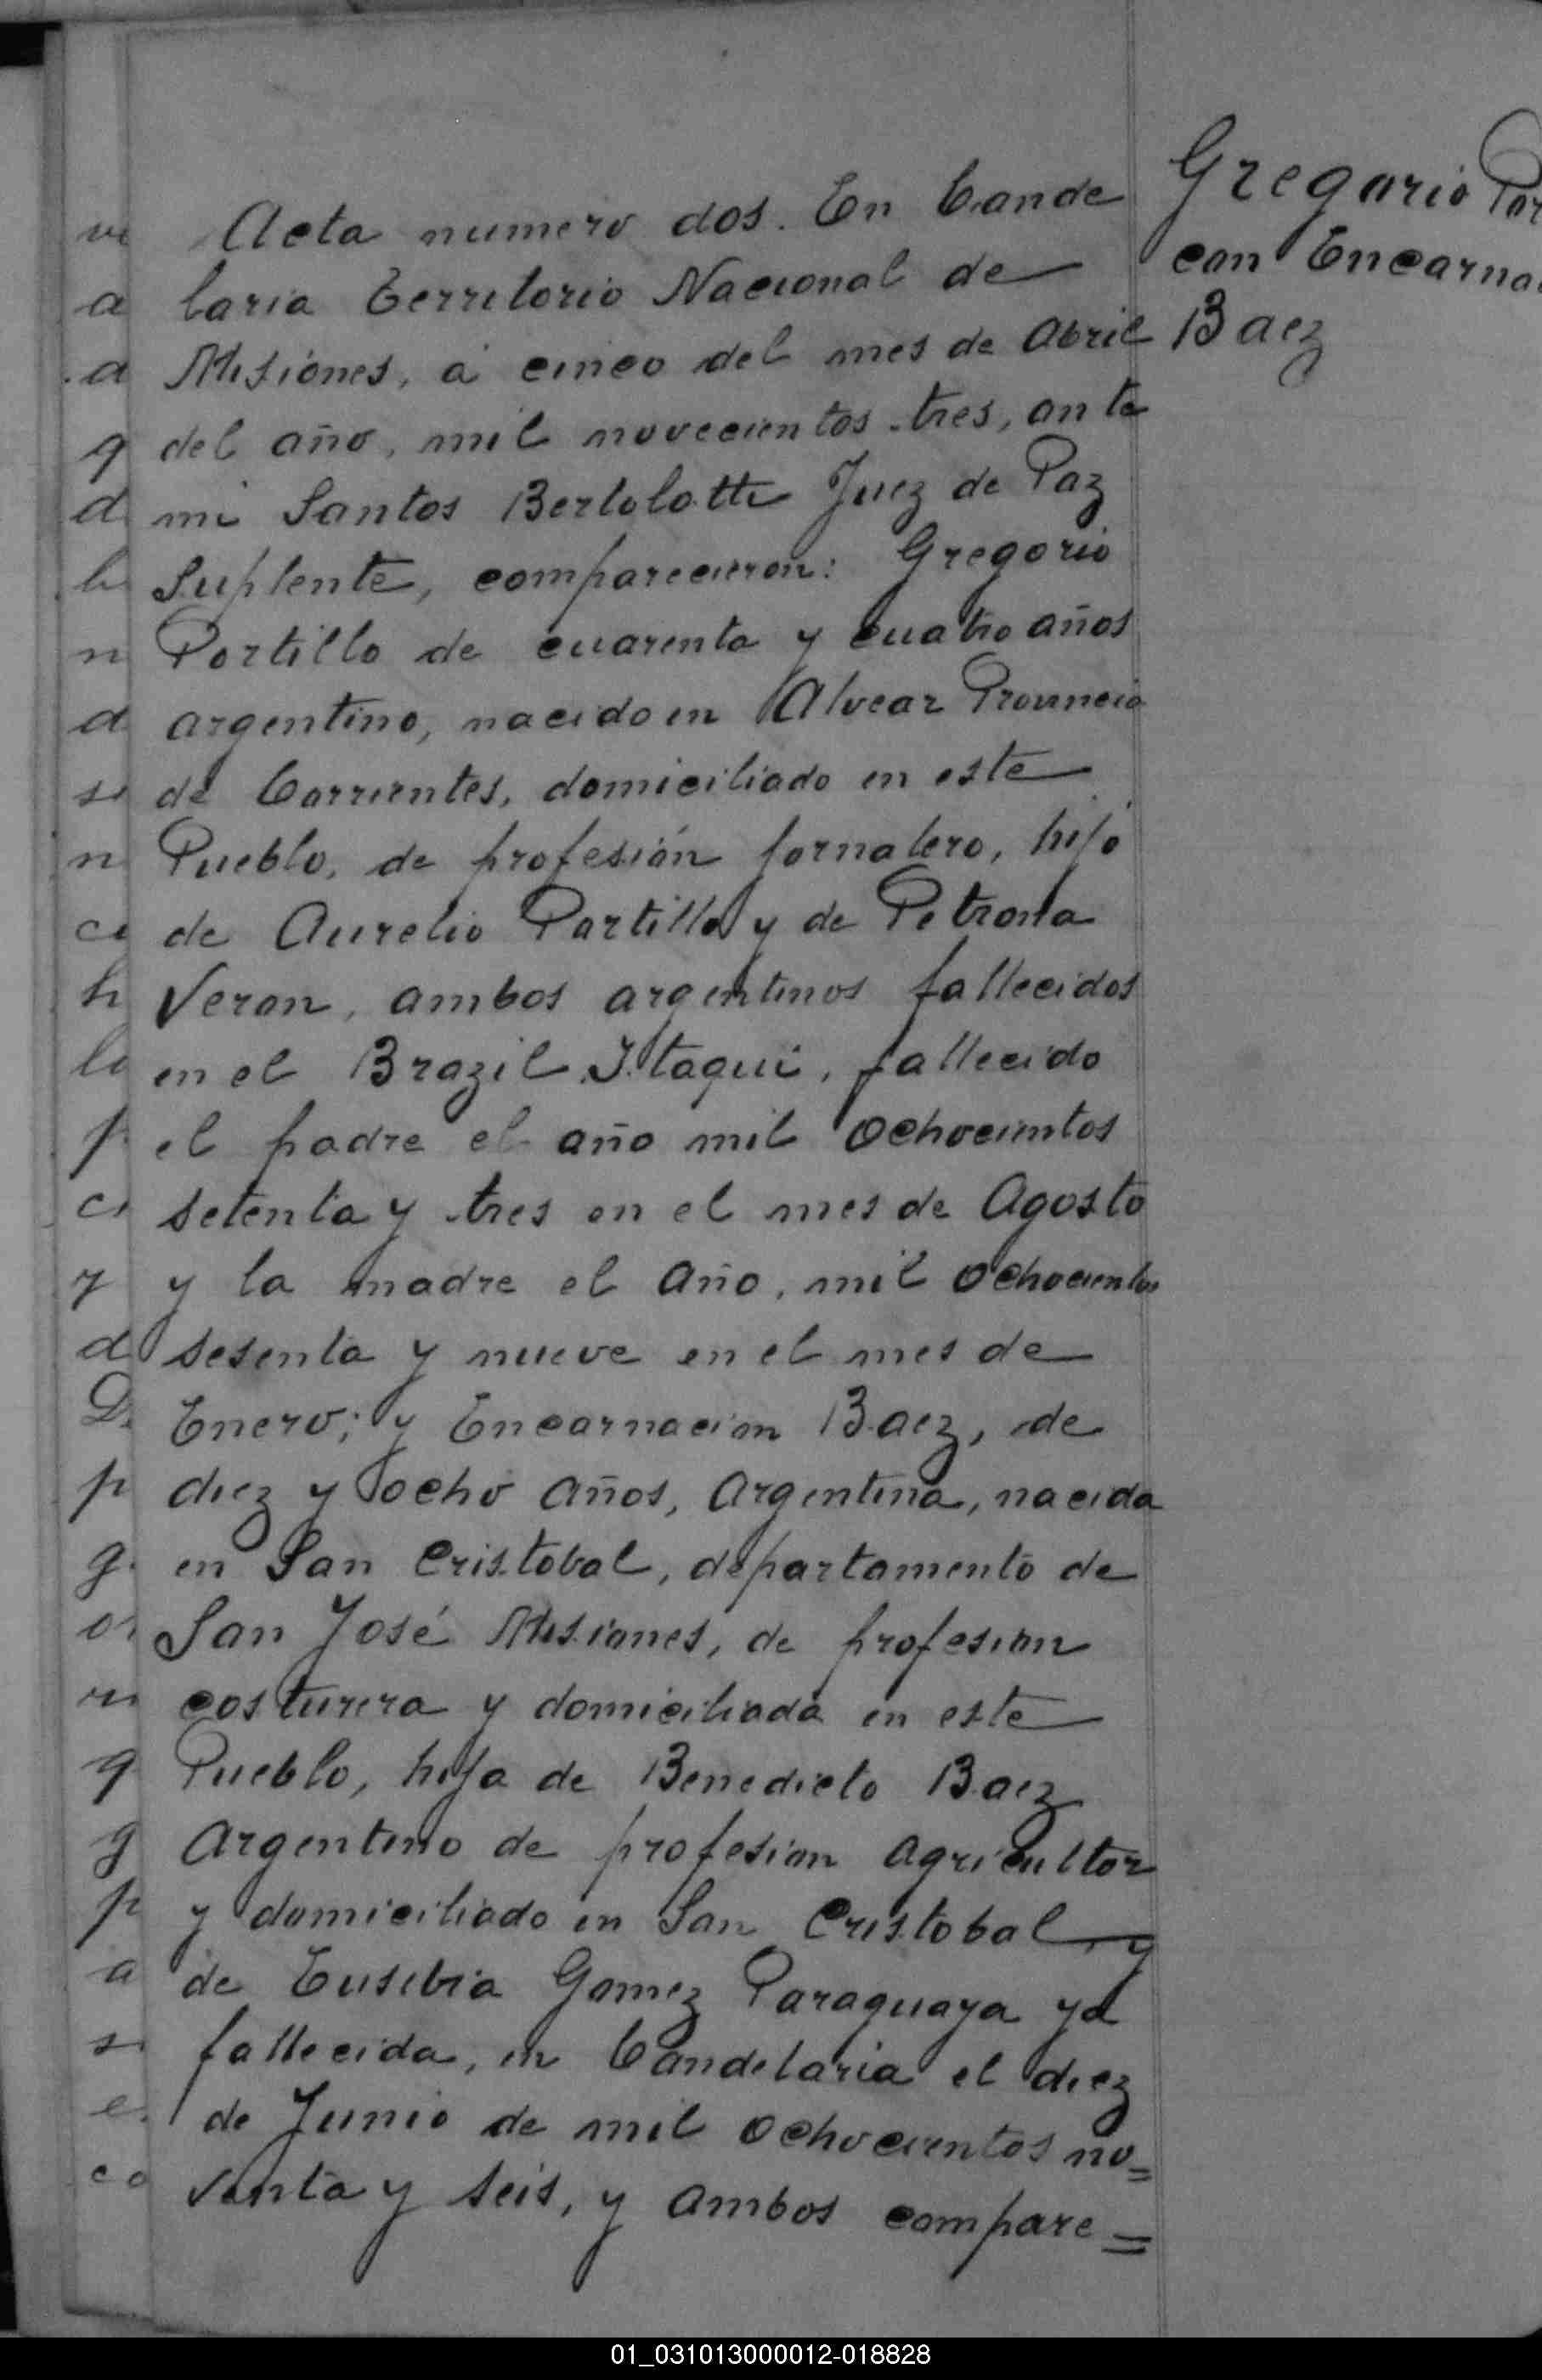 Acta numero dos. En Cande
laria Territorio Nacional de
Misiones, á cinco del mes de Abril
del año, mil novecientos tres, ante
mi Santos Bertolotti Juez de Paz
Suplente, comparecieron: Gregorio
Portillo de cuarenta y cuatro años
argentino, nacido en Alvear Provincia
de Corrientes, domiciliado en este
Pueblo, de profesión jornalero, hijo
de Aurelio Portillo y de Petrona
Veron, ambos argentinos fallecidos
en el Brazil Itaqui, fallecido
el padre el año mil ochocientos
setenta y tres en el mes de Agosto
y la madre el año, mil ochocientos
sesenta y nueve en el mes de
Enero; y Encarnacion Baez, de
diez y ocho años, Argentina, nacida
en San Cristobal, departamento de
San José Misiones, de profesion
costurera y domiciliada en este
Pueblo, hija de Benedicto Baez
Argentino de profesion agricultor
y domiciliado en San Cristobal y
de Eusebia Gomez Paraguaya ya
fallecida, en Candelaria el diez
de Junio de mil ochocientos no=
venta y seis, y ambos compare=
Gregorio Por
con Encarna
Baez
01_031013000012-018828